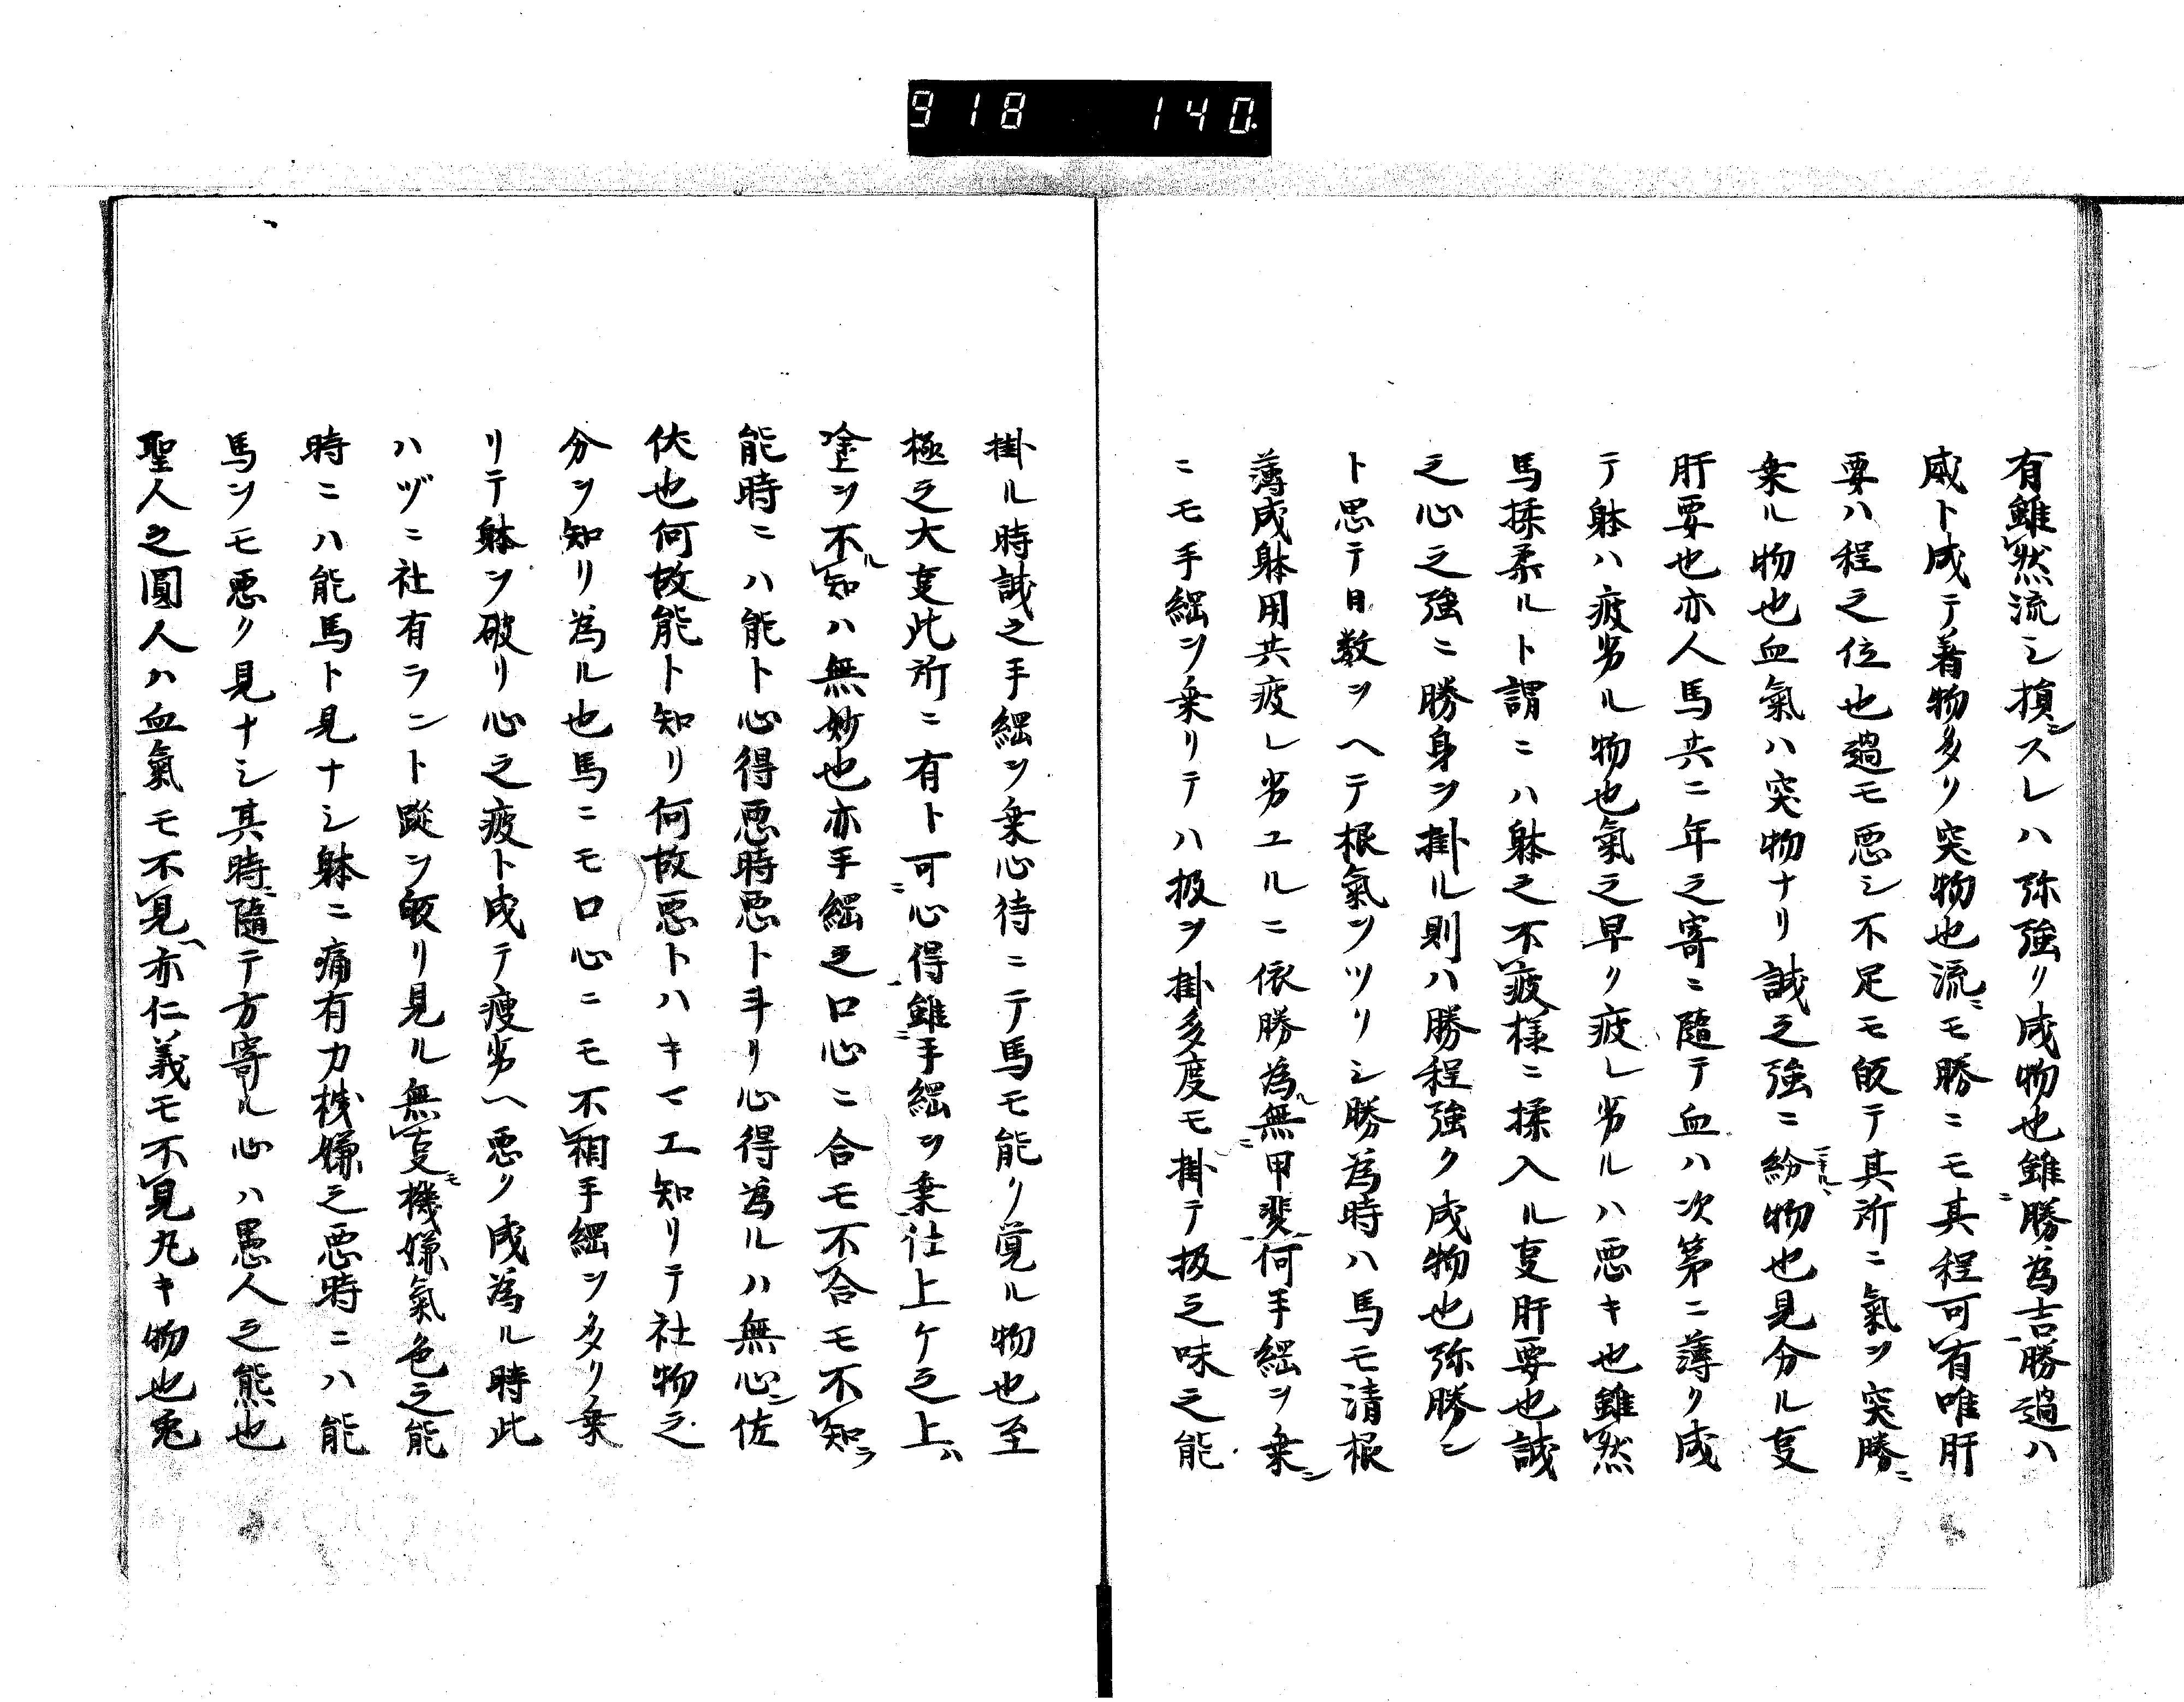 918 140
有雖然流シ損スレハ弥強リ成物也雖勝為吉勝過ハ
威ト成テ着物多リ突物也流ニモ勝ニモ其程可有唯肝
要ハ程之位也過モ悪シ不足モ皈テ其所ニ氣ヲ突勝ニ
乗ル物也血氣ハ突物ナリ誠之強ニ紛物也見分ル叓
肝要也亦人馬共ニ年之寄ニ隨テ血ハ次第ニ薄ク成
テ躰ハ疲劣ル物也氣之早ク疲レ劣ルハ悪キ也雖然
馬揉柔ルト謂ニハ躰之不疲様ニ揉入ル叓肝要也誠
之心之強ニ勝身ヲ掛ル則ハ勝程強ク成物也弥勝シ
ト思テ日数ヲヘテ根氣ヲツリシ勝為時ハ馬モ清根
薄成躰用共疲レ劣ユルニ依勝為ル無甲斐何手綱ヲ乗
ニモ手綱ヲ乗リテハ扱ヲ掛多度モ掛テ扱之味之能
掛ル時誠之手綱ヲ乗心待ニテ馬モ能ク覚ル物也至
極之大叓此所ニ有ト可心得雖手綱ヲ乗仕上ケ之上ハ
塗ヲ不知ルハ無妙也亦手綱之口心ニ合モ不合モ不知ラ
能時ニハ能ト心得悪時悪ト斗リ心得為ルハ無心ニ佐
伏也何故能ト知リ何故悪トハキマエ知リテ社物之
分ヲ知リ為ル也馬ニモ口心ニモ不相手綱ヲ多リ乗
リテ躰ヲ破リ心之疲ト成テ瘦劣ヘ悪ク成為ル時此
ハヅニ社有ラント蹤ヲ皈リ見ル無叓モ機嫌氣色之能
時ニハ能馬ト見ナシ躰ニ痛有カ機嫌之悪時ニハ能
馬ヲモ悪ク見ナシ其時ニ隨テ方寄ル心ハ愚人之態也
聖人之圓人ハ血氣モ不見亦仁義モ不見丸キ物也兎